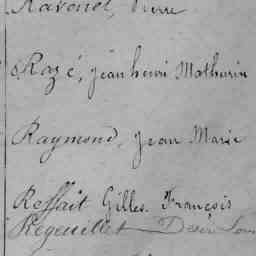 Ravonel, Pierre
Razé, jean henri Mathurin
Raymond, Jean Marie
Reffait Gilles. François
Regeuillet Désiré Louis